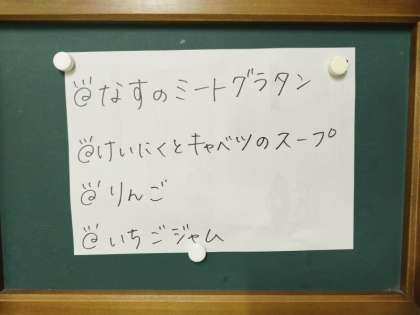 @なすのミートグラタン
@けいにくとキャベツのスープ
@りんご
@いちごジャム